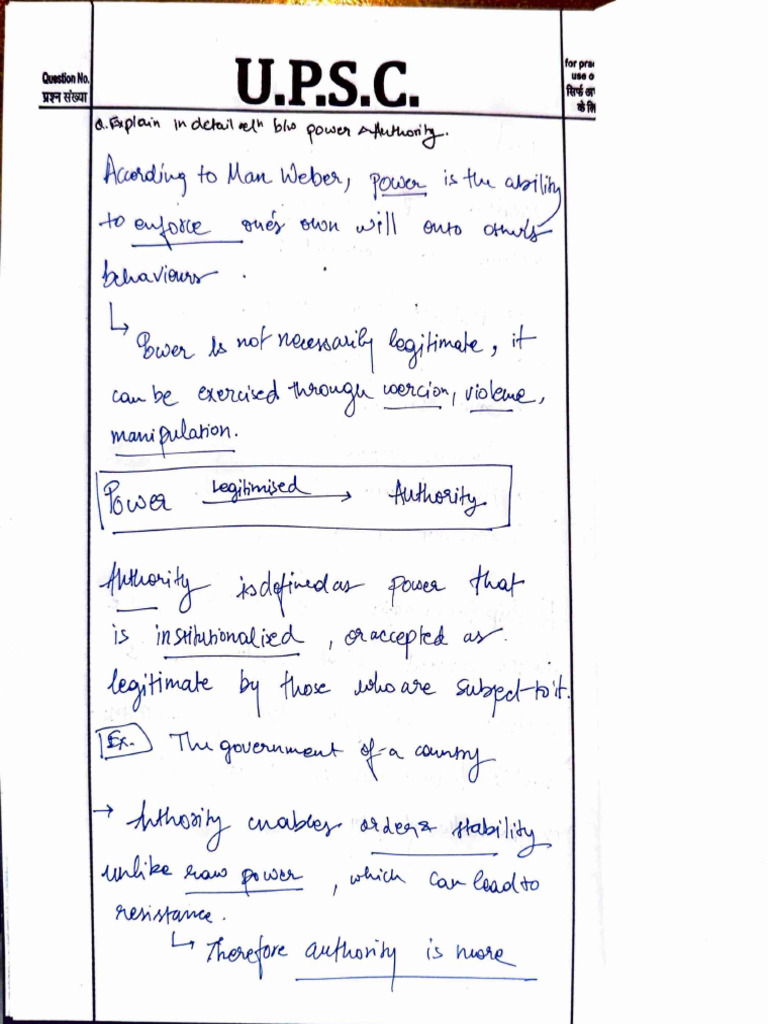 Question No.
प्रश्न संख्या
U.P.S.C.
for prac
use o
सिर्फ अ
के लि
Q. Explain in detail reln b/w power & Authority.
According to Man Weber, power is the ability
to enforce one's own will onto other's
behaviours.
↳ Power is not necessarily legitimate, it
can be exercised through coercion, violence,
manipulation.
Power Legitimised → Authority
Authority is defined as power that
is institutionalized, or accepted as
legitimate by those who are subject to it.
Ex. The government of a country
→ Authority enables order & stability
unlike raw power, which can lead to
resistance.
↳ Therefore authority is more